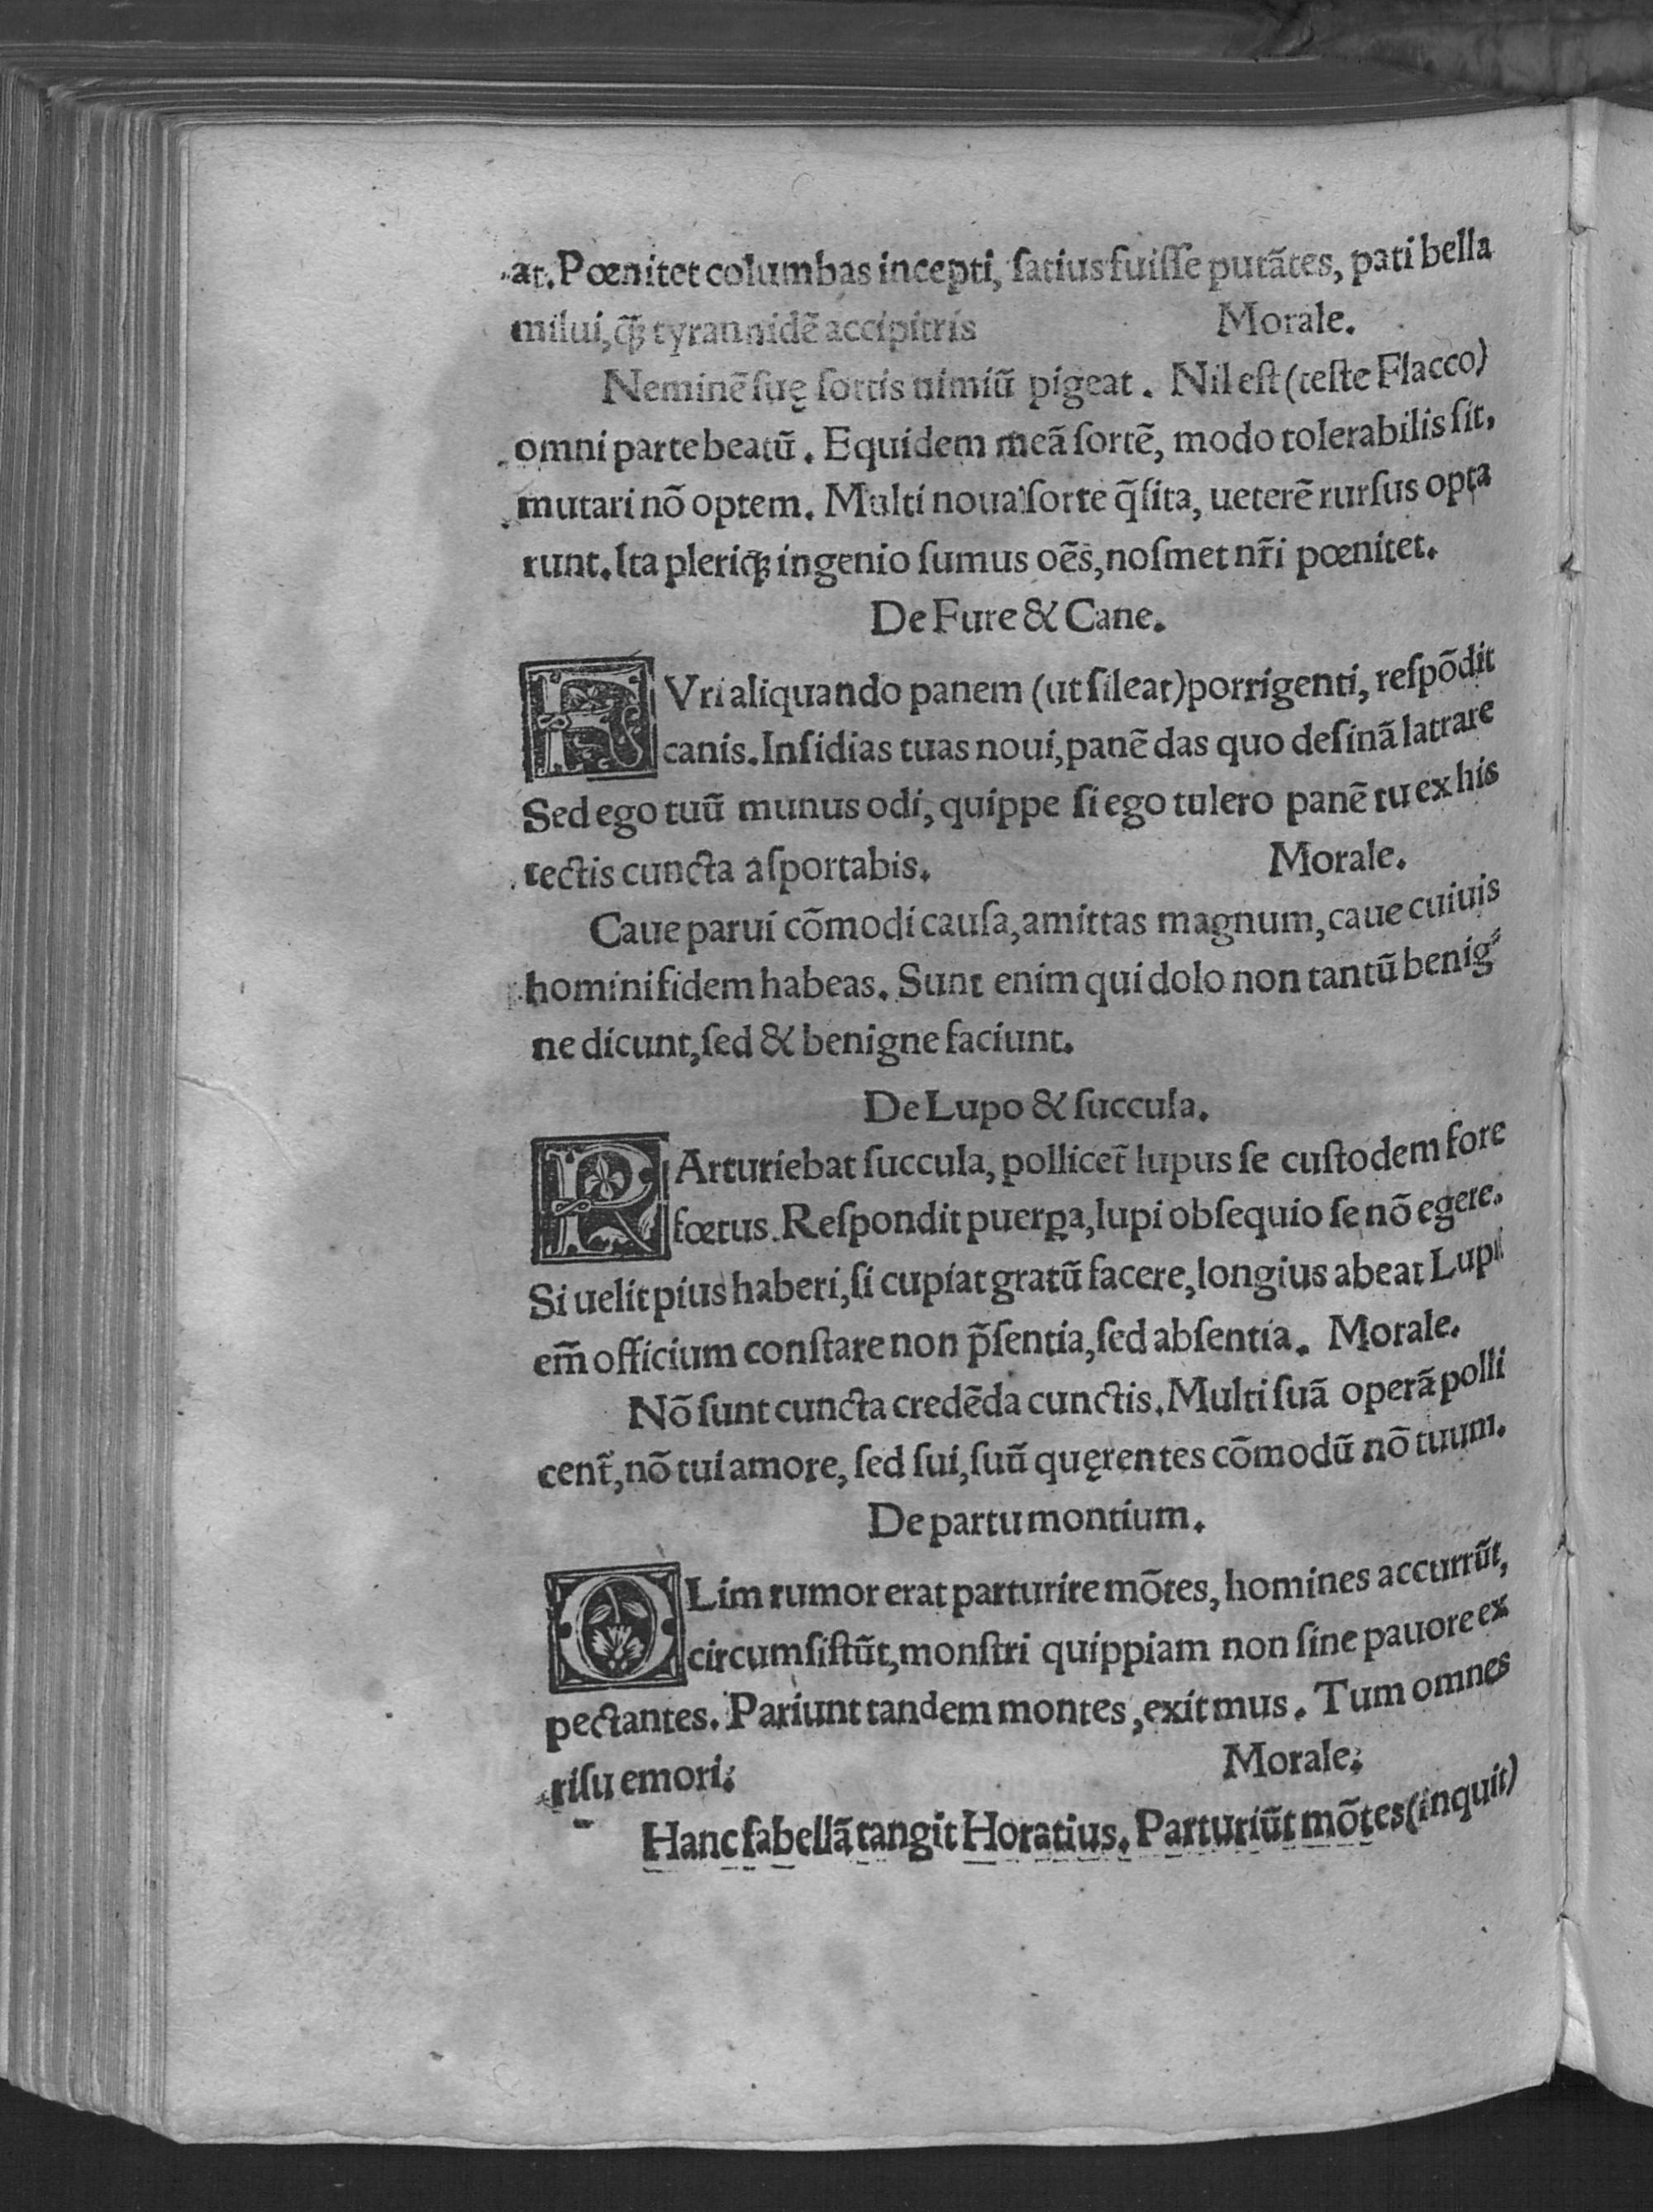 at. Pœnitet columbas incepti, ſatius fuiſſe putãtes, pati bella
milui, ꝙ̃ tyrannidẽ accipitris Morale.
Neminẽ ſuę ſortis nimiũ pigeat. Nil eſt (teſte Flacco)
omni parte beatũ. Equidem meã ſortẽ, modo tolerabilis ſit,
mutari nõ optem. Multi noua ſorte q̃ſita, ueterẽ rurſus opta
runt. Ita pleriqꝫ ingenio ſumus oẽs, noſmet nr̃i pœnitet.
De Fure & Cane.
FVri aliquando panem (ut ſileat) porrigenti, reſpõdit
canis. Inſidias tuas noui, panẽ das quo deſinã latrare
Sed ego tuũ munus odi, quippe ſi ego tulero panẽ tu ex his
tectis cuncta aſportabis. Morale.
Caue parui cõmodi cauſa, amittas magnum, caue cuiuis
homini fidem habeas. Sunt enim qui dolo non tantũ benig⸗
ne dicunt, ſed & benigne faciunt.
De Lupo & ſuccula.
PArturiebat ſuccula, pollicet̃ lupus ſe cuſtodem fore
fœtus. Reſpondit puerꝑa, lupi obſequio ſe nõ egere.
Si uelit pius haberi, ſi cupiat gratũ facere, longius abeat Lupi
em̃ officium conſtare non p̃ſentia, ſed abſentia. Morale.
Nõ ſunt cuncta credẽda cunctis. Multi ſuã operã polli
cent̃, nõ tui amore, ſed ſui, ſuũ quęrentes cõmodũ nõ tuum.
De partu montium.
OLim rumor erat parturire mõtes, homines accurrũt,
circumſiſtũt, monſtri quippiam non ſine pauore ex
pectantes. Pariunt tandem montes, exit mus. Tum omnes
riſu emori. Morale.
Hanc fabellã tangit Horatius. Parturiũt mõtes (inquit)